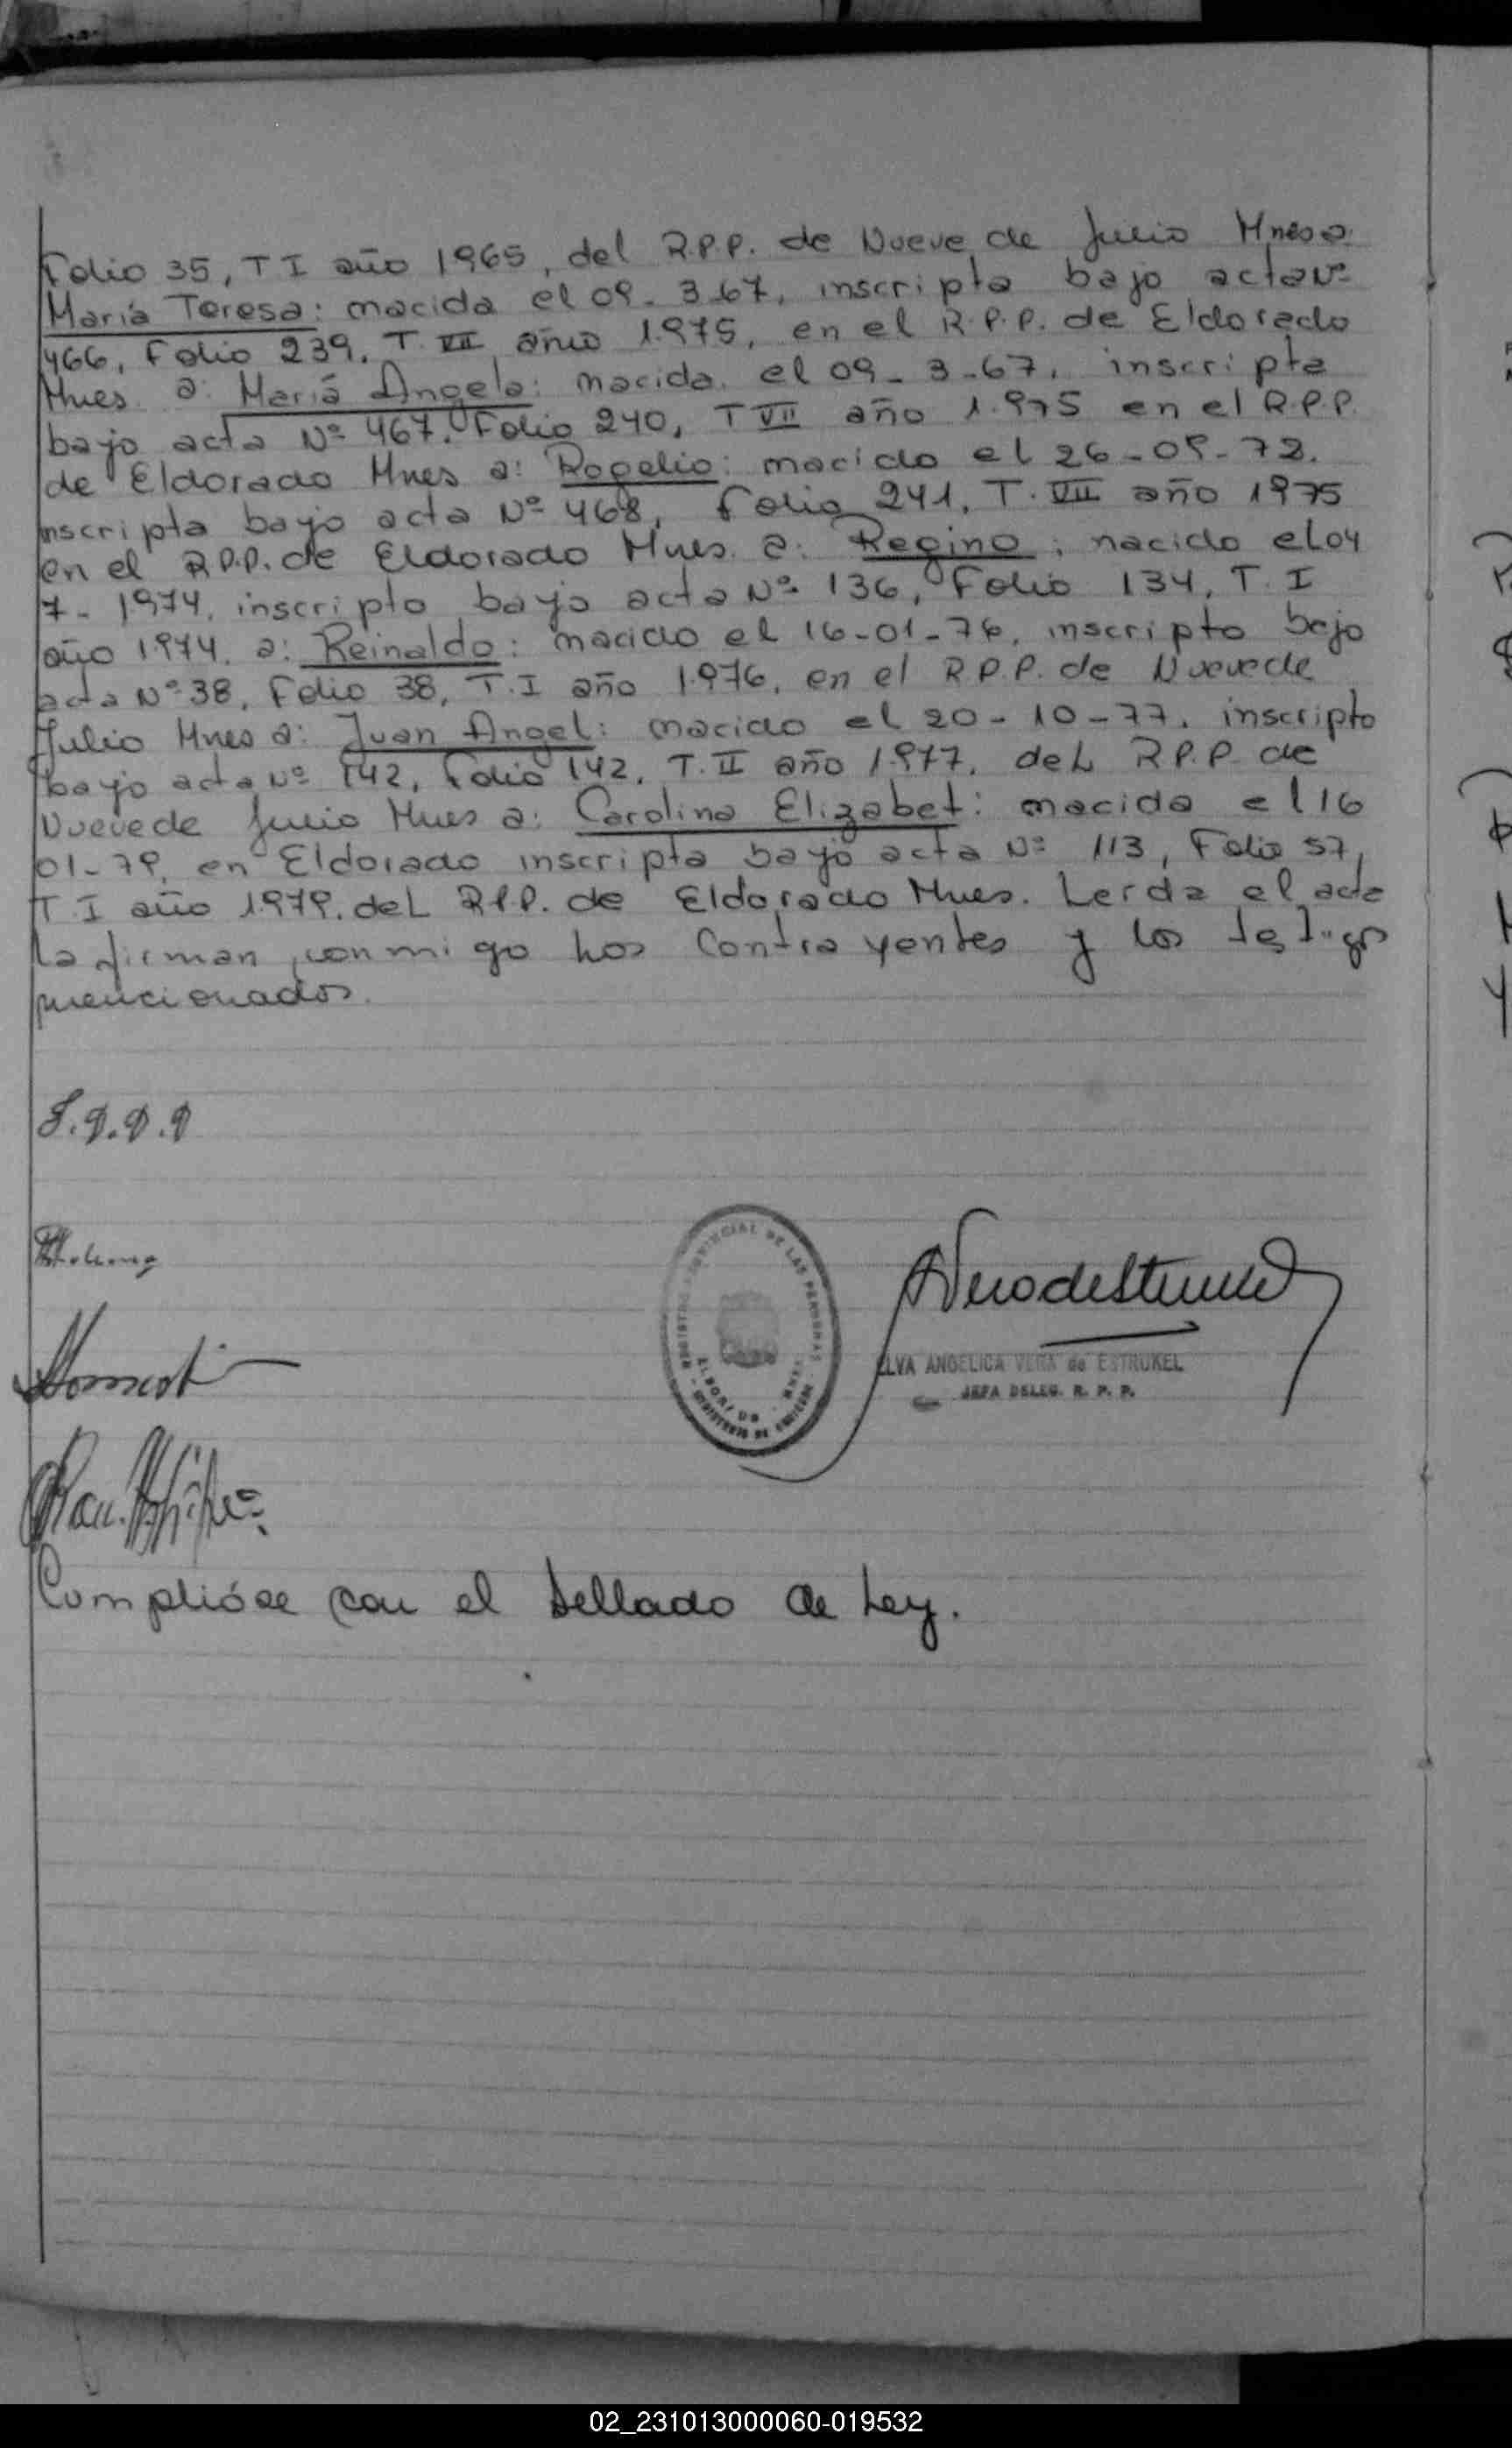 Folio 35, T I año 1965, del R.P.P. de Nueve de Julio Mnes a:
María Teresa: nacida el 09-3-67, inscripta bajo acta Nº
466, Folio 239, T. VII año 1.975, en el R.P.P. de Eldorado
Mnes. a: María Angela: nacida el 09-3-67, inscripta
bajo acta Nº 467, Folio 240, T VII año 1.975 en el R.P.P.
de Eldorado Mnes a: Rogelio: nacido el 26-09-72.
inscripta bajo acta Nº 468, Folio 241, T. VII año 1975
en el R.P.P. de Eldorado Mnes. a: Regino; nacido el 04
7-1974, inscripto bajo acta Nº 136, Folio 134, T. I
año 1974. a: Reinaldo: nacido el 16-01-76, inscripto bajo
acta Nº 38, Folio 38, T. I año 1.976, en el R.P.P. de Nueve de
Julio Mnes a: Juan Angel: nacido el 20-10-77. inscripto
bajo acta Nº 142, Folio 142, T. II año 1.977, del R.P.P. de
Nueve de Julio Mnes a: Carolina Elizabet: nacida el 16
01-79, en Eldorado inscripta bajo acta Nº 113, Folio 57,
T. I año 1.979. del R.P.P. de Eldorado Mnes. Leída el acta
la firman conmigo los Contrayentes y los testigos
mencionados.
REGISTRO PROVINCIAL DE LAS PERSONAS
ELDORADO - MNES.
MINISTERIO DE GOBIERNO
ELVA ANGELICA VERA de ESTRUKEL
JEFA DELEG. R. P. P.
Cumplióse con el Sellado de Ley.
02_231013000060-019532